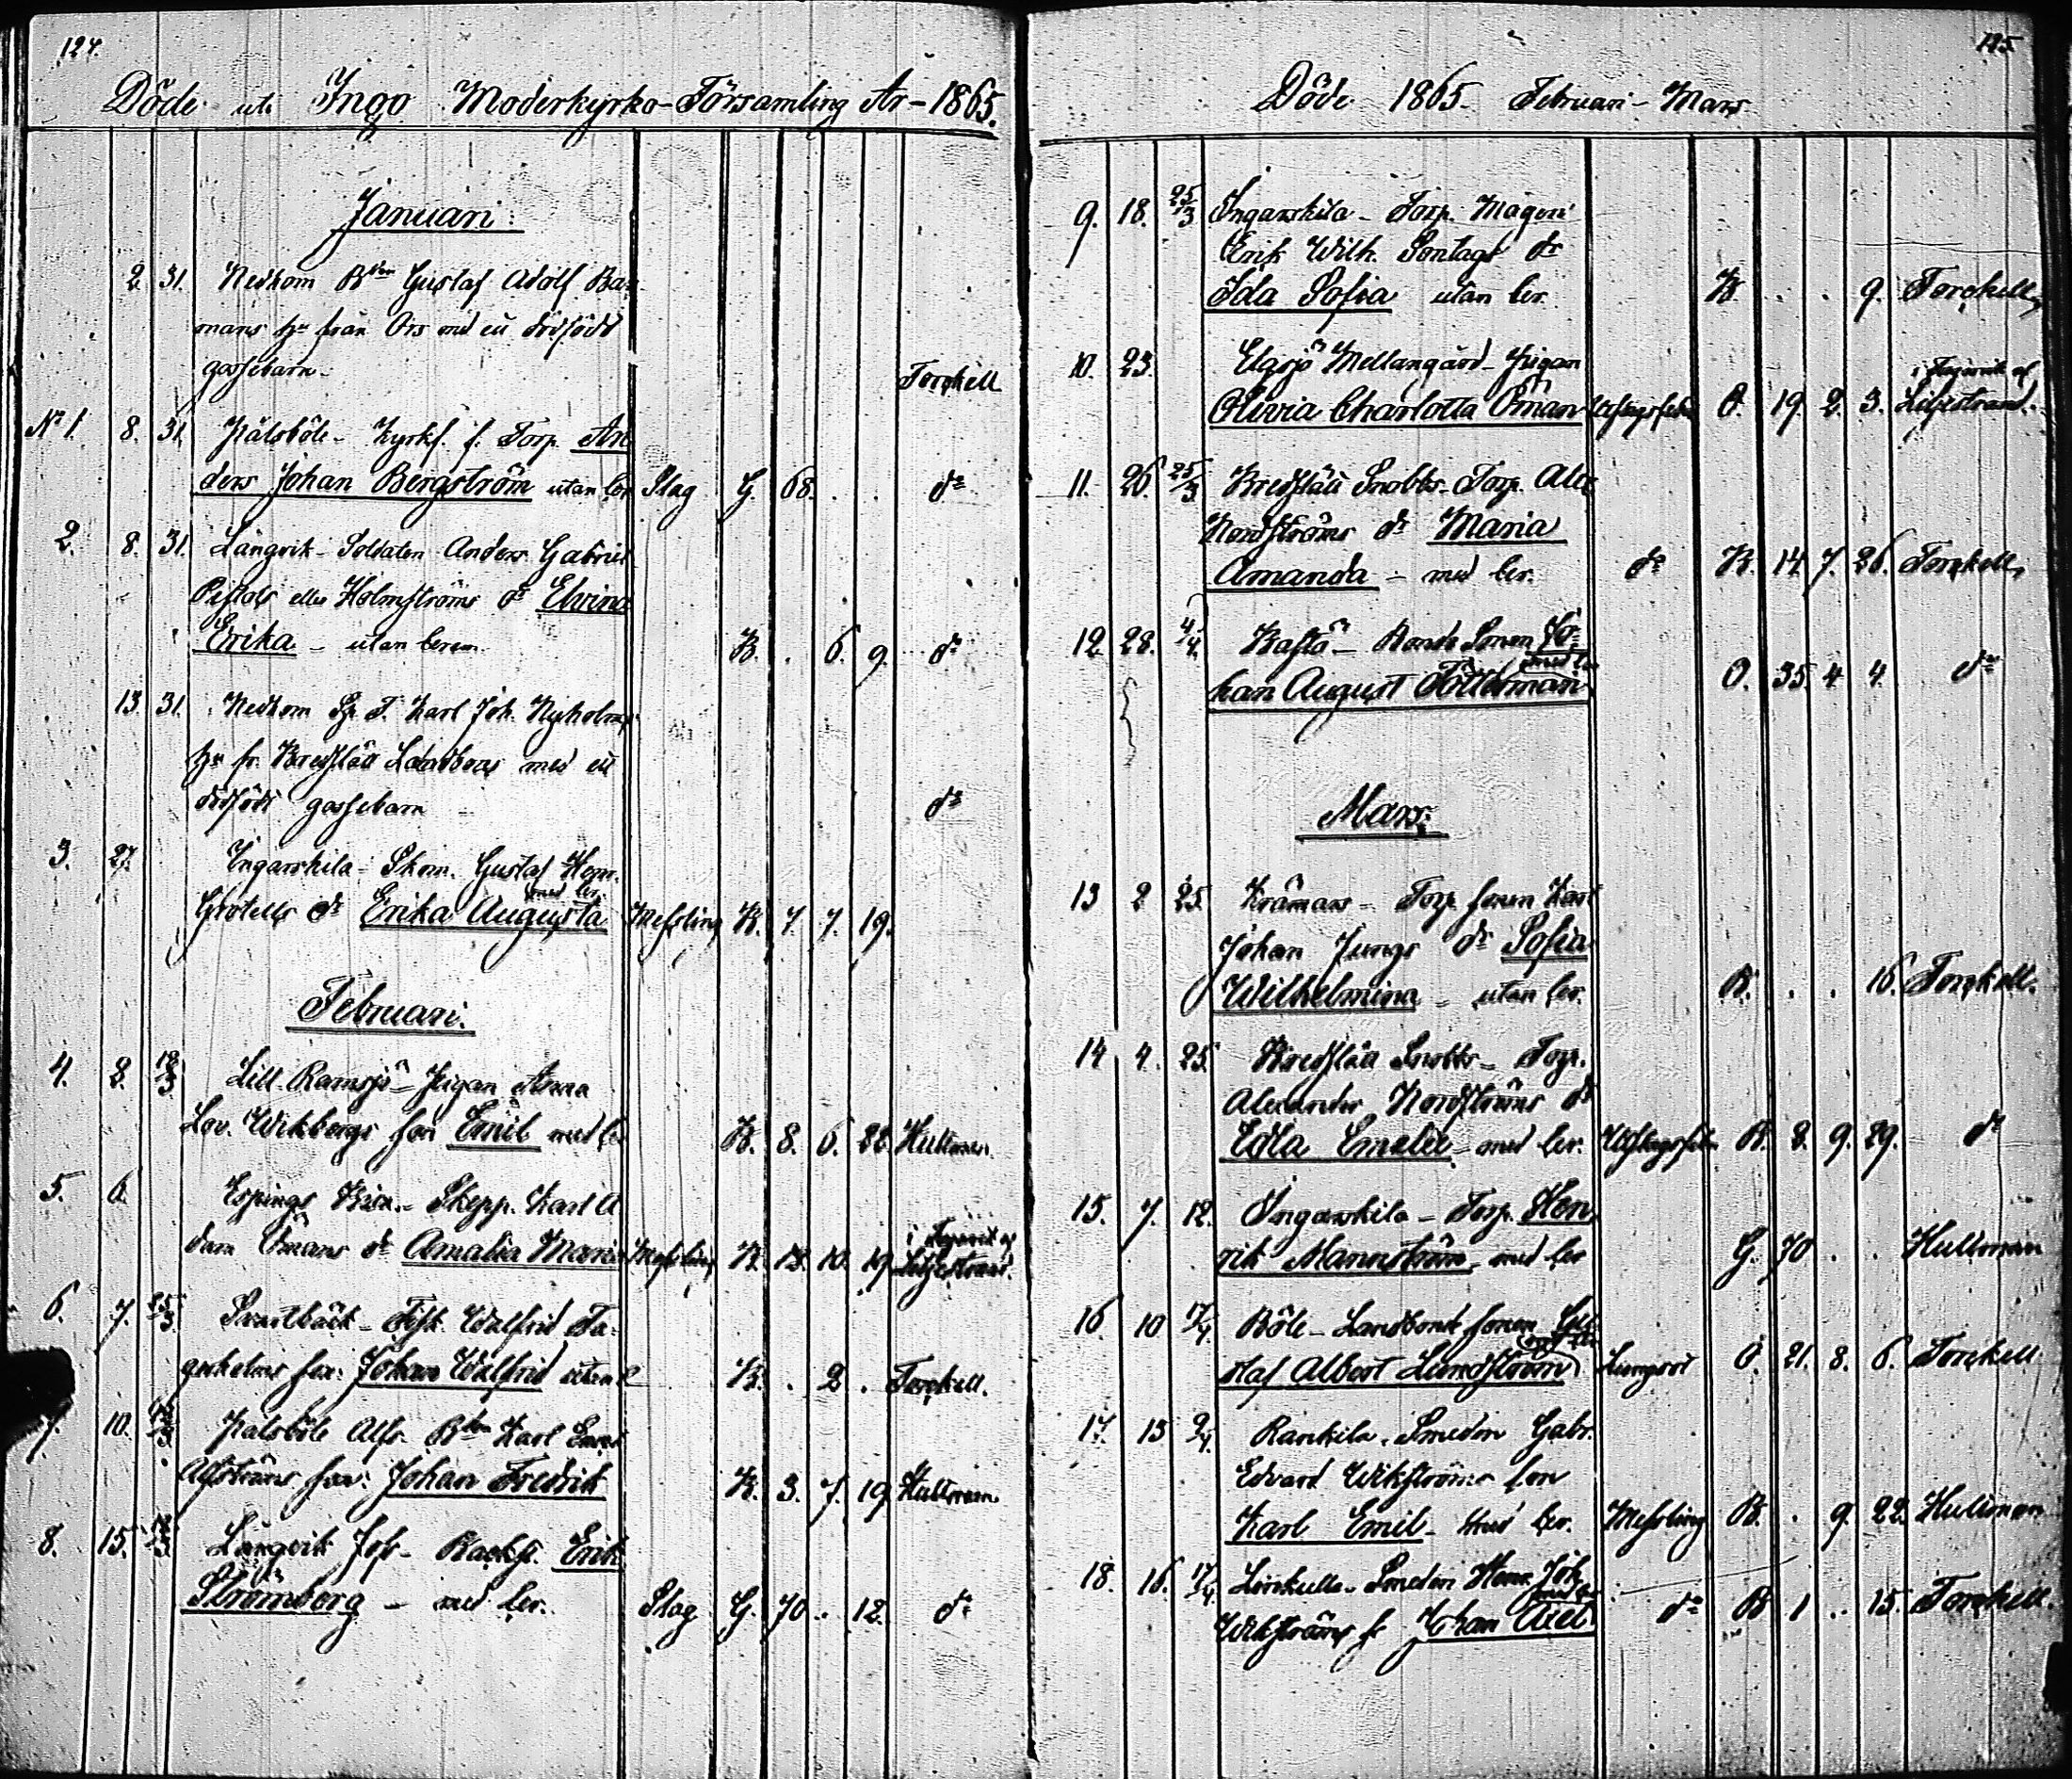 124.
Döde uti Ingo Moderkyrko-Församling År - 1865.
Januari.
2. 31. Nedkom Bden Gustaf Adolf
mans hu från Ors med ett dödfödt
gossebarn. Torckell
No 1. 8. 31. Kälsböle - Kyrkf. f. Torp. An
ders Johan Bergström utan ber. Slag G. 68. . . do
2. 8. 31. Långvik - Soldaten Anders Gabriel
Pistols eller Holmströms dr Elvina
Erika - utan berem. B. . 6. 9. do
13. 31. Nedkom Sp. T. Karl Joh. Nyholms
hu fr. Bredslätt med ett
dödfödt gossebarn do
3. 27. Ingarskila - Skom. Gustaf Henr.
med ber.
Grotells dr Erika Augusta Messling B. 7. 7. 19.
Februari.
4. 8. Lill Ramsjö - Pigan Anna
Lov. Wikbergs son Emil med ber B. 8. 6. 22. Hultman.
5. 6. Espings - Skepp. Karl A
dam Ömans dr Amalia Maria Messling B. 13. 10. 19. i Degervik af Liljestrand.
6. 7. 25/3 Svartbäck - Fisk. Walfrid
son: Johan Walfrid utan b B. . 2. . Torckell.
7. 10. Kälsböle Alfs. Bden Karl
Alfströms son: Johan Fredrik B. 3. 7. 19. Hultman
8. 15. Långvik Jofs - Backst. Erik
Strömberg - med ber. Slag G. 70. . 12. do
125.
Döde 1865. Februari - Mars
9. 18. 25/3 Ingarskila - Torp. Mågen
Erik Wilh. Sontags dr
Ida Sofia utan ber. B. . . 9. Torckell
10. 23. Elgsjö Mellangård - Pigan
Olivia Charlotta Öman O. 19. 2. 3. i Degervik af Liljestrand.
11. 26. 25/3 Bredslätt Snobbs - Torp. Alex
Nordströms dr Maria
Amanda - med ber. do B. 14. 7. 26. Torckell
12. 28. 4/4. Bastö - Bonde Sonen Jo-
med ber
han August Fötterman O. 35. 4. 4. do
Mars.
13 2 25. Krämars - Torp. sonen Karl
Johan Jungs dr Sofia
Wilhelmina - utan ber. B. . . 16. Torckell.
14 4. 25. Bredslätt Snobbs - Torp.
Alexander Nordströms dr
Edla Emelie - med ber. B. 8. 9. 29. do
15. 7. 12. Ingarskila - Torp. Hen
rik Mannström, med ber G. 70. . . Hultman
16. 10 17/4. Böle - Landbonde sonen Gu
med ber
staf Albert Lundström Lungsot O. 21. 8. 6. Torckell
17. 15 9/4. Rankila - Smeden Gabr.
Edvard Wikströms son
Karl Emil - med ber. Messling B. . 9. 22. Hultman
18. 16. 17/4. Linkulla - Smeden Henr. Joh.
med ber
Wikströms s. Johan Axel do B 1 . . 15. Torckell.